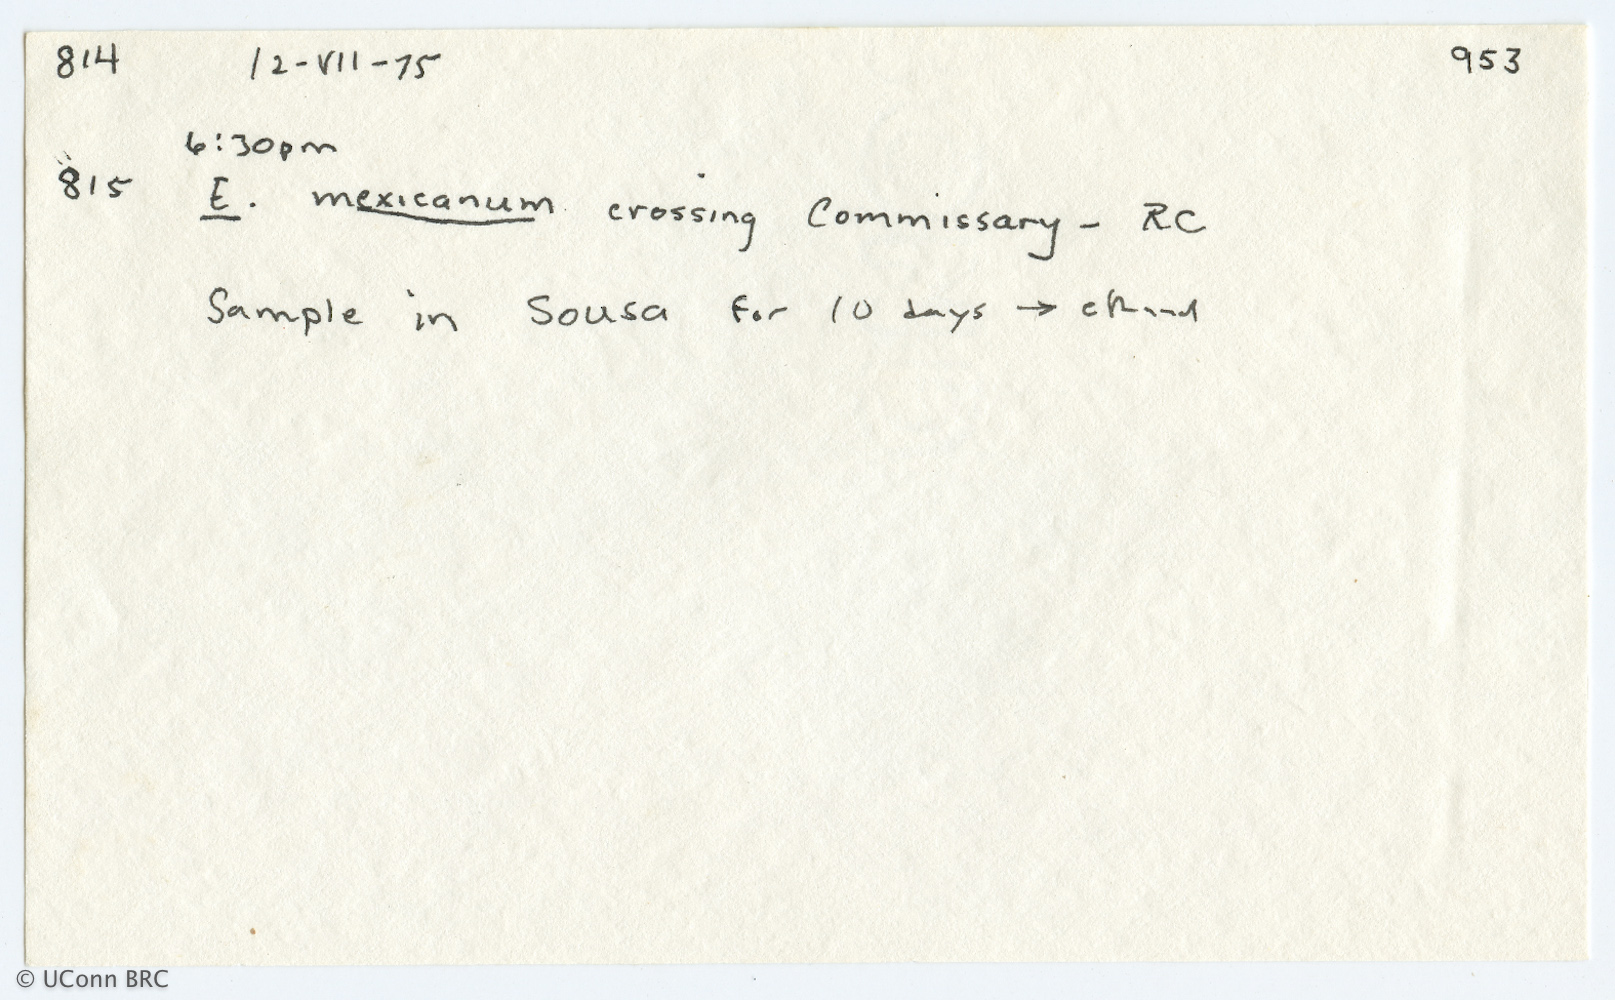 814 12-VII-75 953
6:30pm
815 E. mexicanum crossing Commissary - RC
Sample in Sousa for 10 days → ethanol
© UConn BRC